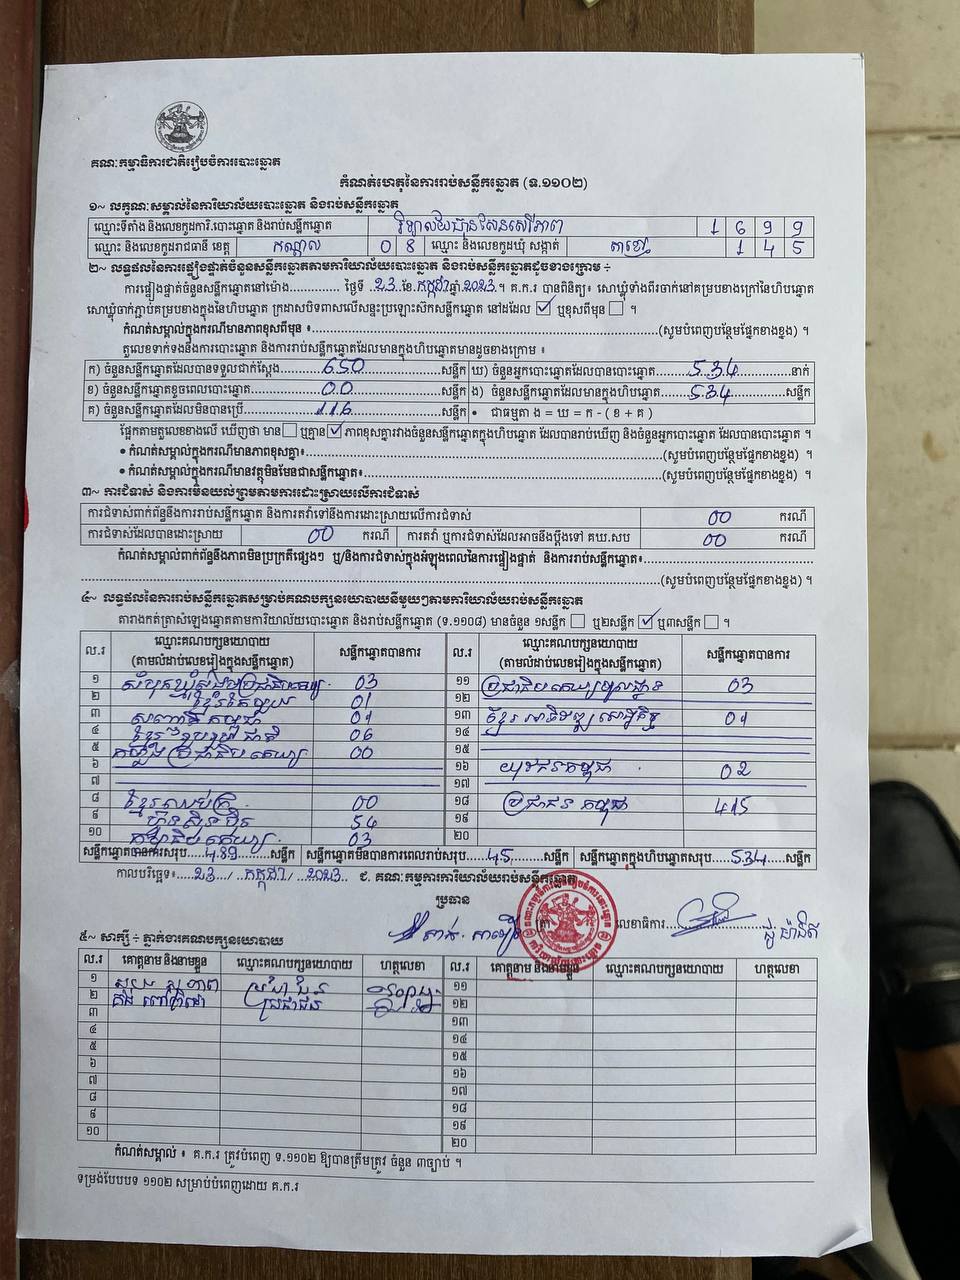 គណៈកម្មាធិការជាតិរៀបចំការបោះឆ្នោត
កំណត់ហេតុនៃការរាប់សន្លឹកឆ្នោត (ទ.១១០២)
១~ លក្ខណៈសម្គាល់នៃការិយាល័យបោះឆ្នោត និងរាប់សន្លឹកឆ្នោត
ឈ្មោះទីតាំង និងលេខកូដការិ.បោះឆ្នោត និងរាប់សន្លឹកឆ្នោត វិទ្យាល័យហ៊ុនសែនសេរីភាព 1 6 9 9
ឈ្មោះ និងលេខកូដរាជធានី ខេត្ត កណ្តាល 0 8 ឈ្មោះ និងលេខកូដឃុំ សង្កាត់ តាខ្មៅ 1 4 5
២~ លទ្ធផលនៃការផ្ទៀងផ្ទាត់ចំនួនសន្លឹកឆ្នោតតាមការិយាល័យបោះឆ្នោត និងរាប់សន្លឹកឆ្នោតដូចខាងក្រោម ÷
ការផ្ទៀងផ្ទាត់ចំនួនសន្លឹកឆ្នោតនៅម៉ោង............. ថ្ងៃទី ..23..ខែ.កក្កដា.ឆ្នាំ.2023.។ គ.ក.រ បានពិនិត្យ៖ សោឃ្លុំទាំងពីរចាក់នៅគម្របខាងក្រៅនៃហិបឆ្នោត
សោឃ្លុំចាក់ភ្ជាប់គម្របខាងក្នុងនៃហិបឆ្នោត ក្រដាសបិទពាសលើសន្ទះប្រឡោះស៊កសន្លឹកឆ្នោត នៅដដែល ☑ ឬខុសពីមុន ☐ ។
កំណត់សម្គាល់ក្នុងករណីមានភាពខុសពីមុន ៖...............(សូមបំពេញបន្ថែមផ្នែកខាងខ្នង) ។
តួលេខទាក់ទងនឹងការបោះឆ្នោត និងការរាប់សន្លឹកឆ្នោតដែលមានក្នុងហិបឆ្នោតមានដូចខាងក្រោម ៖
ក) ចំនួនសន្លឹកឆ្នោតដែលបានទទួលជាក់ស្តែង......650......សន្លឹក ឃ) ចំនួនអ្នកបោះឆ្នោតដែលបានបោះឆ្នោត......534......នាក់
ខ) ចំនួនសន្លឹកឆ្នោតខូចពេលបោះឆ្នោត......00......សន្លឹក ង) ចំនួនសន្លឹកឆ្នោតដែលមានក្នុងហិបឆ្នោត......534......សន្លឹក
គ) ចំនួនសន្លឹកឆ្នោតដែលមិនបានប្រើ......116......សន្លឹក • ជាធម្មតា ង = ឃ = ក - ( ខ + គ )
ផ្អែកតាមតួលេខខាងលើ ឃើញថា មាន☐ ឬគ្មាន☑ ភាពខុសគ្នារវាងចំនួនសន្លឹកឆ្នោតក្នុងហិបឆ្នោត ដែលបានរាប់ឃើញ និងចំនួនអ្នកបោះឆ្នោត ដែលបានបោះឆ្នោត ។
• កំណត់សម្គាល់ក្នុងករណីមានភាពខុសគ្នា៖...............(សូមបំពេញបន្ថែមផ្នែកខាងខ្នង) ។
• កំណត់សម្គាល់ក្នុងករណីមានវត្ថុមិនមែនជាសន្លឹកឆ្នោត៖...............(សូមបំពេញបន្ថែមផ្នែកខាងខ្នង) ។
៣~ ការជំទាស់ និងការមិនយល់ព្រមតាមការដោះស្រាយលើការជំទាស់
ការជំទាស់ពាក់ព័ន្ធនឹងការរាប់សន្លឹកឆ្នោត និងការតវ៉ាទៅនឹងការដោះស្រាយលើការជំទាស់ 00 ករណី
ការជំទាស់ដែលបានដោះស្រាយ 00 ករណី ការតវ៉ា ឬការជំទាស់ដែលអាចនឹងប្តឹងទៅ គឃ.សប 00 ករណី
កំណត់សម្គាល់ពាក់ព័ន្ធនឹងភាពមិនប្រក្រតីផ្សេងៗ ឬ/និងការជំទាស់ក្នុងអំឡុងពេលនៃការផ្ទៀងផ្ទាត់ និងការរាប់សន្លឹកឆ្នោត៖...............
...............(សូមបំពេញបន្ថែមផ្នែកខាងខ្នង) ។
៤~ លទ្ធផលនៃការរាប់សន្លឹកឆ្នោតសម្រាប់គណបក្សនយោបាយនីមួយៗតាមការិយាល័យរាប់សន្លឹកឆ្នោត
តារាងកត់ត្រាសំឡេងឆ្នោតតាមការិយាល័យបោះឆ្នោត និងរាប់សន្លឹកឆ្នោត (ទ.១១០៨) មានចំនួន ១សន្លឹក ☐ ឬ២សន្លឹក ☑ ឬ៣សន្លឹក ☐ ។
ល.រ ឈ្មោះគណបក្សនយោបាយ (តាមលំដាប់លេខរៀងក្នុងសន្លឹកឆ្នោត) សន្លឹកឆ្នោតបានការ ល.រ ឈ្មោះគណបក្សនយោបាយ (តាមលំដាប់លេខរៀងក្នុងសន្លឹកឆ្នោត) សន្លឹកឆ្នោតបានការ
១ សំបុកឃ្មុំសង្គមប្រជាធិបតេយ្យ 03 ១១ ប្រជាធិបតេយ្យមូលដ្ឋាន 03
២ ខ្មែរតែមួយ 01 ១២
៣ សញ្ជាតិកម្ពុជា 01 ១៣ ខ្មែរអភិវឌ្ឍន៍សេដ្ឋកិច្ច 01
៤ ខ្មែររួបរួមជាតិ 06 ១៤
៥ កម្លាំងប្រជាធិបតេយ្យ 00 ១៥
៦ ១៦ យុវជនកម្ពុជា 02
៧ ១៧
៨ ខ្មែរឈប់ក្រ 00 ១៨ ប្រជាជនកម្ពុជា 415
៩ ហ៊្វុនស៊ិនប៉ិច 54 ១៩
១០ កម្ពុជាធិបតេយ្យ 03 ២០
សន្លឹកឆ្នោតបានការសរុប....489....សន្លឹក សន្លឹកឆ្នោតមិនបានការពេលរាប់សរុប....45....សន្លឹក សន្លឹកឆ្នោតក្នុងហិបឆ្នោតសរុប....534....សន្លឹក
កាលបរិច្ឆេទ៖...23.../...កក្កដា.../...2023... ជ. គណៈកម្មការការិយាល័យរាប់សន្លឹកឆ្នោត
ប្រធាន
លេខាធិការ
៥~ សាក្សី ÷ ភ្នាក់ងារគណបក្សនយោបាយ
ល.រ គោត្តនាម និងនាមខ្លួន ឈ្មោះគណបក្សនយោបាយ ហត្ថលេខា ល.រ គោត្តនាម និងនាមខ្លួន ឈ្មោះគណបក្សនយោបាយ ហត្ថលេខា
១ ១១
២ ប្រជាជន ១២
៣ ១៣
៤ ១៤
៥ ១៥
៦ ១៦
៧ ១៧
៨ ១៨
៩ ១៩
១០ ២០
កំណត់សម្គាល់ ៖ គ.ក.រ ត្រូវបំពេញ ទ.១១០២ ឱ្យបានត្រឹមត្រូវ ចំនួន ៣ច្បាប់ ។
ទម្រង់បែបបទ ១១០២ សម្រាប់បំពេញដោយ គ.ក.រ